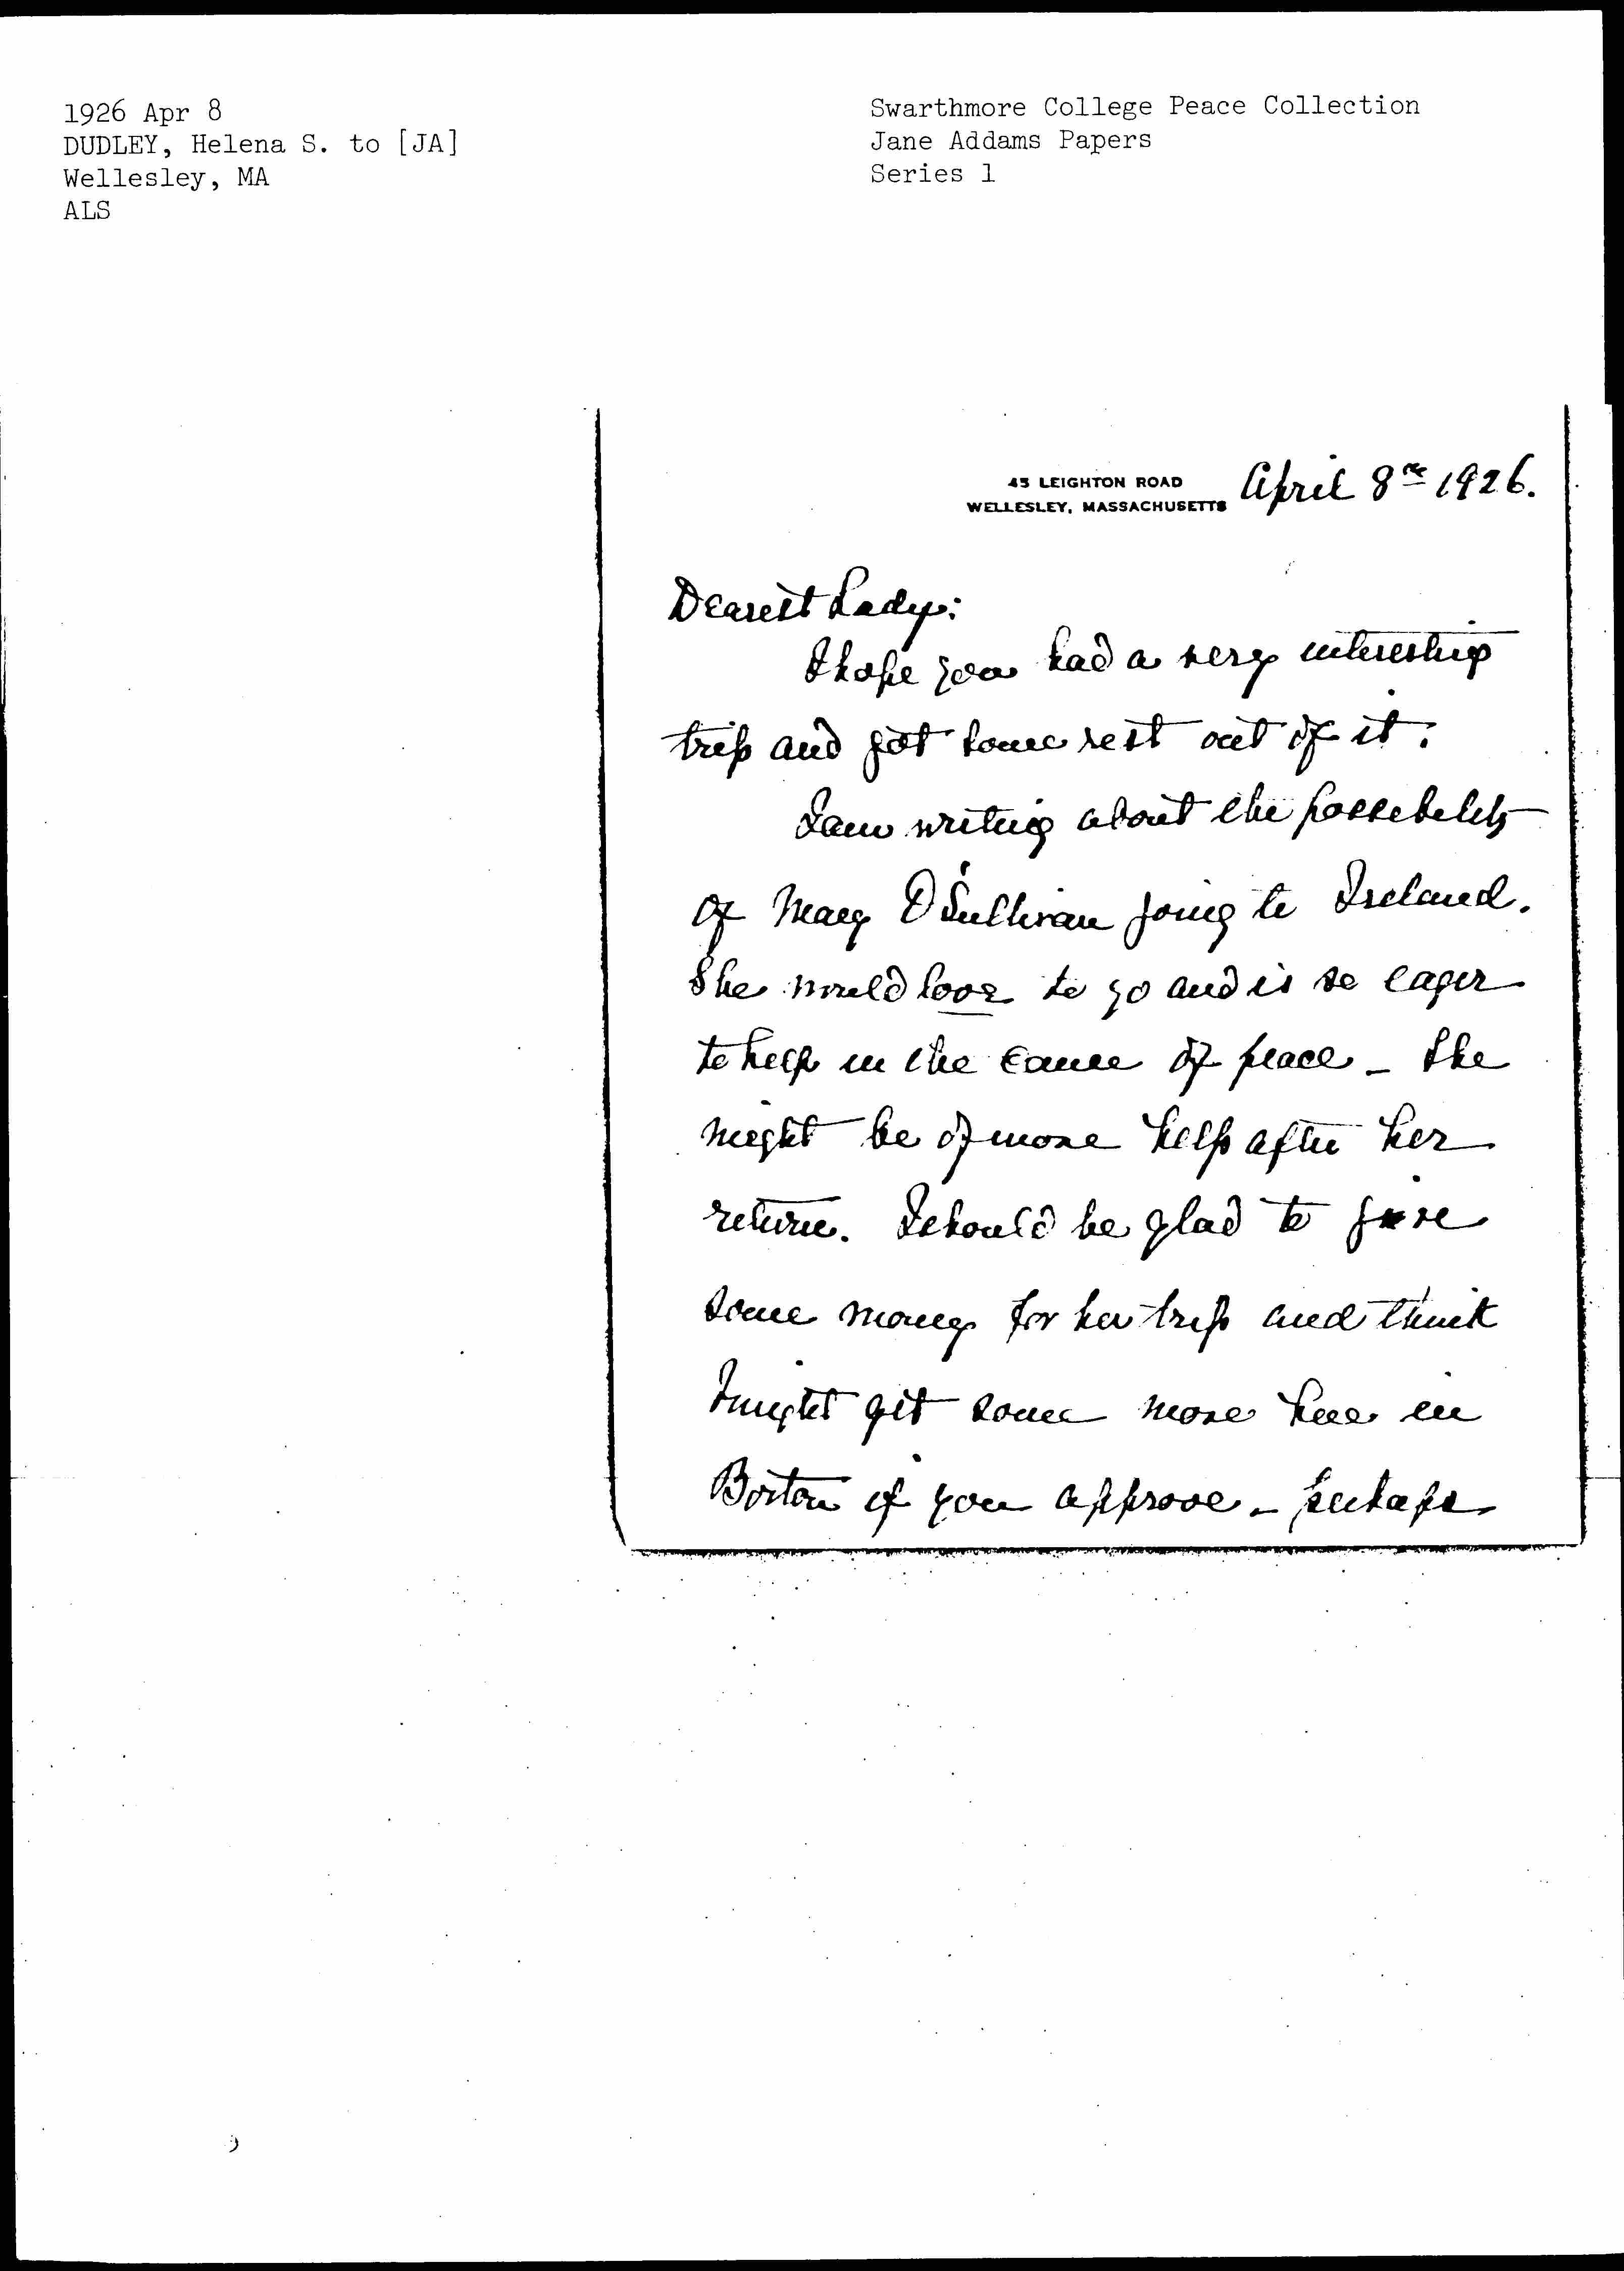 1926 Apr 8
DUDLEY, Helena S. to [JA]
Wellesley, MA
ALS
Swarthmore College Peace Collection
Jane Addams Papers
Series 1
45 LEIGHTON ROAD
WELLESLEY, MASSACHUSETTS
April 8th 1926.
Dearest Lady:
I hope you had a very interesting
trip and got some rest out of it.
I am writing about the possibility
of Mary O'Sullivan going to Ireland.
She would love to go and is so eager
to help in the cause of peace - She
might be of more help after her
return. I should be glad to give
some money for her trip and think
I might get some more here in
Boston if you approve - perhaps